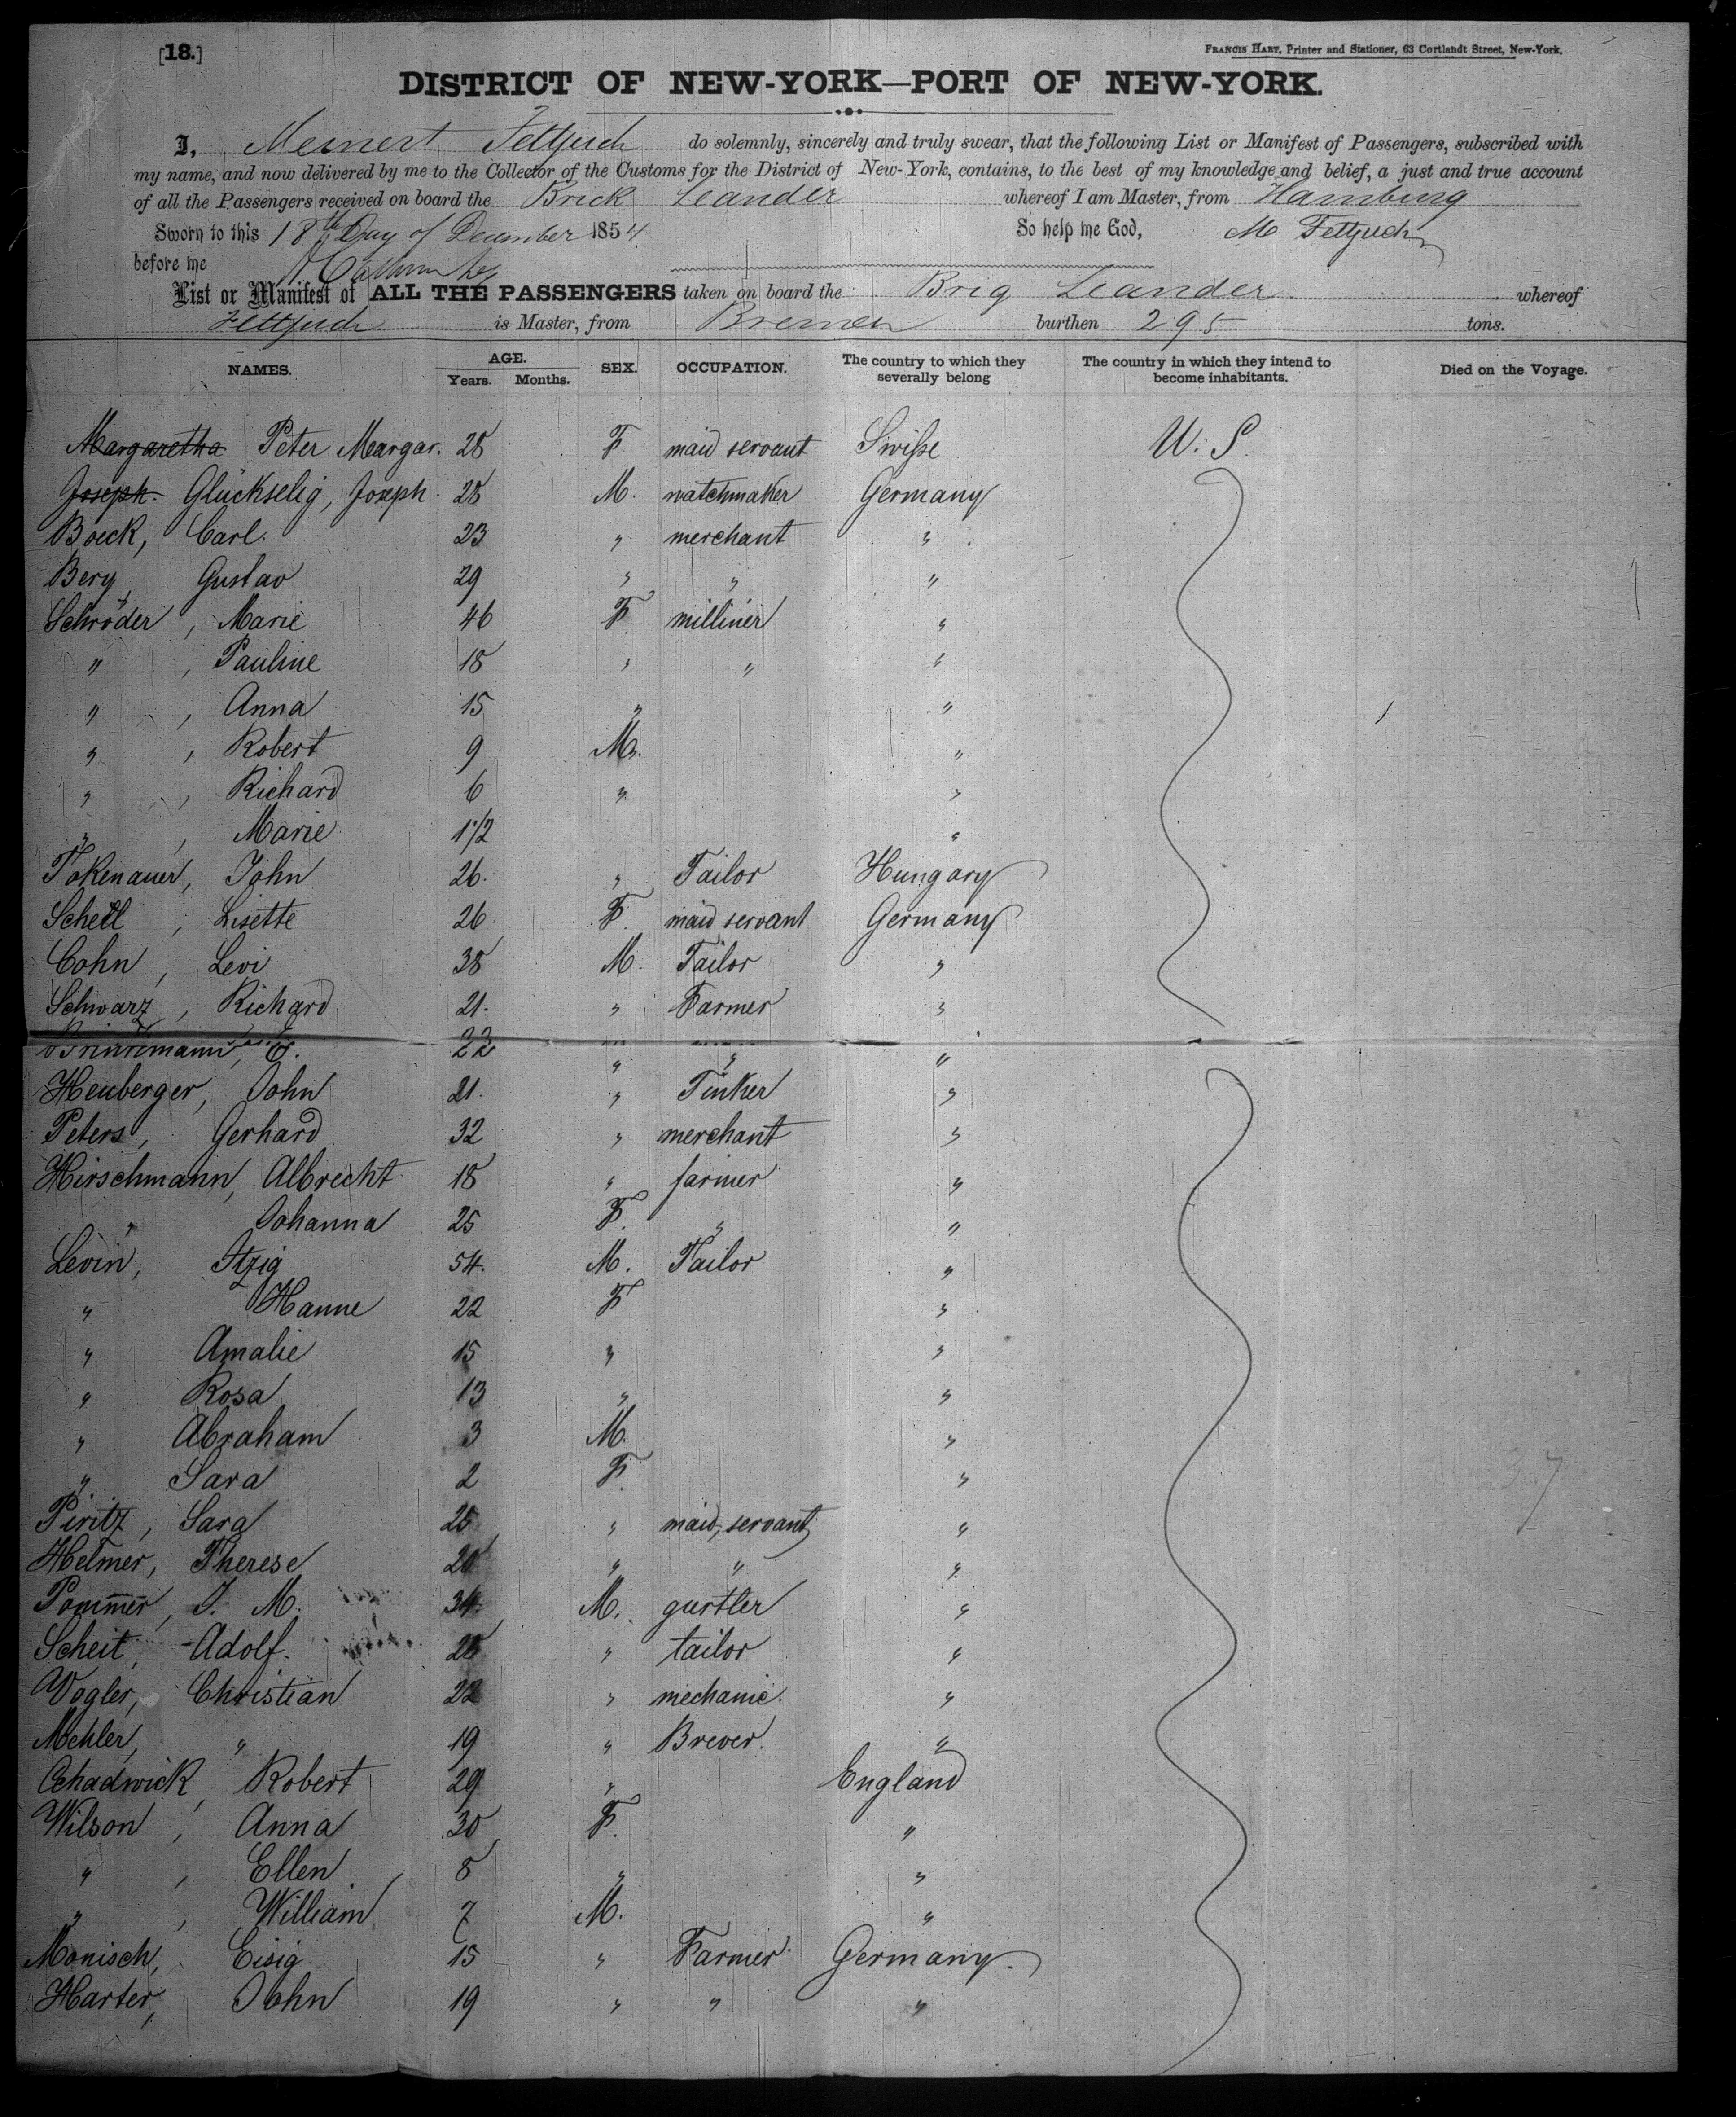 [18.]
FRANCIS HART, Printer and Stationer, 63 Cortlandt Street, New-York.
DISTRICT OF NEW-YORK—PORT OF NEW-YORK.
I, Meinert do solemnly, sincerely and truly swear, that the following List or Manifest of Passengers, subscribed with
my name, and now delivered by me to the Collector of the Customs for the District of New-York, contains, to the best of my knowledge and belief, a just and true account
of all the Passengers received on board the Brick Leander whereof I am Master, from Hamburg
Sworn to this 18th Day of December 1854 So help me God, M
before me
List or Manifest of ALL THE PASSENGERS taken on board the Brig Leander whereof
is Master, from Bremen burthen 295 tons.
NAMES. AGE. Years. Months. SEX. OCCUPATION. The country to which they severally belong The country in which they intend to become inhabitants. Died on the Voyage.
Margaretha Peter Margar. 28 F maid servant Swisse U. S.
Joseph. Glückselig, Joseph. 28 M. watchmaker Germany
Boeck, Carl. 23 " merchant "
Berg, Gustav 29 " " "
Schröder, Marie 46 F milliner "
" , Pauline 18 " " "
" , Anna 15 " "
" , Robert 9 M. "
" , Richard 6 " "
" , Marie 1 1/2 "
Tokenauer, John 26. " Tailor Hungary
Schell, Lisette 26 F. maid servant Germany
Cohn, Levi 38 M. Tailor "
Schwarz, Richard 21. " Farmer "
22 " " "
Heuberger, John 21. " Tinker "
Peters, Gerhard 32 " merchant "
Hirschmann, Albrecht 18 " farmer "
" Johanna 25 F. " "
Levin, Itzig 54. M. Tailor "
" Hanne 22 F "
" Amalie 15 " "
" Rosa 13 " "
" Abraham 3 M. "
" Sara 2 F. "
Piritz, Sara 25 " maid servant "
Helmer, Therese 20 " " "
Pommer, J. M. 34. M. gurtler "
Scheit, Adolf. 28 " tailor "
Vogler, Christian 22 " mechanic. "
Mehler, " 19 " Brever. "
Chadwick, Robert 29 " England
Wilson, Anna 30 F. "
" , Ellen 8 " "
" , William 7 M. "
Monisch, Eisig 15 " Farmer Germany.
Harter, John 19 " " "
37